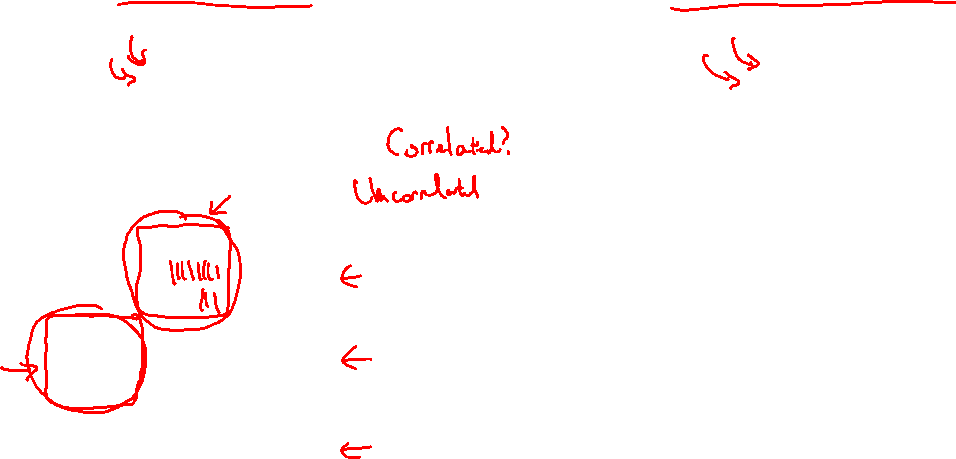 Correlated?
Uncorrelated